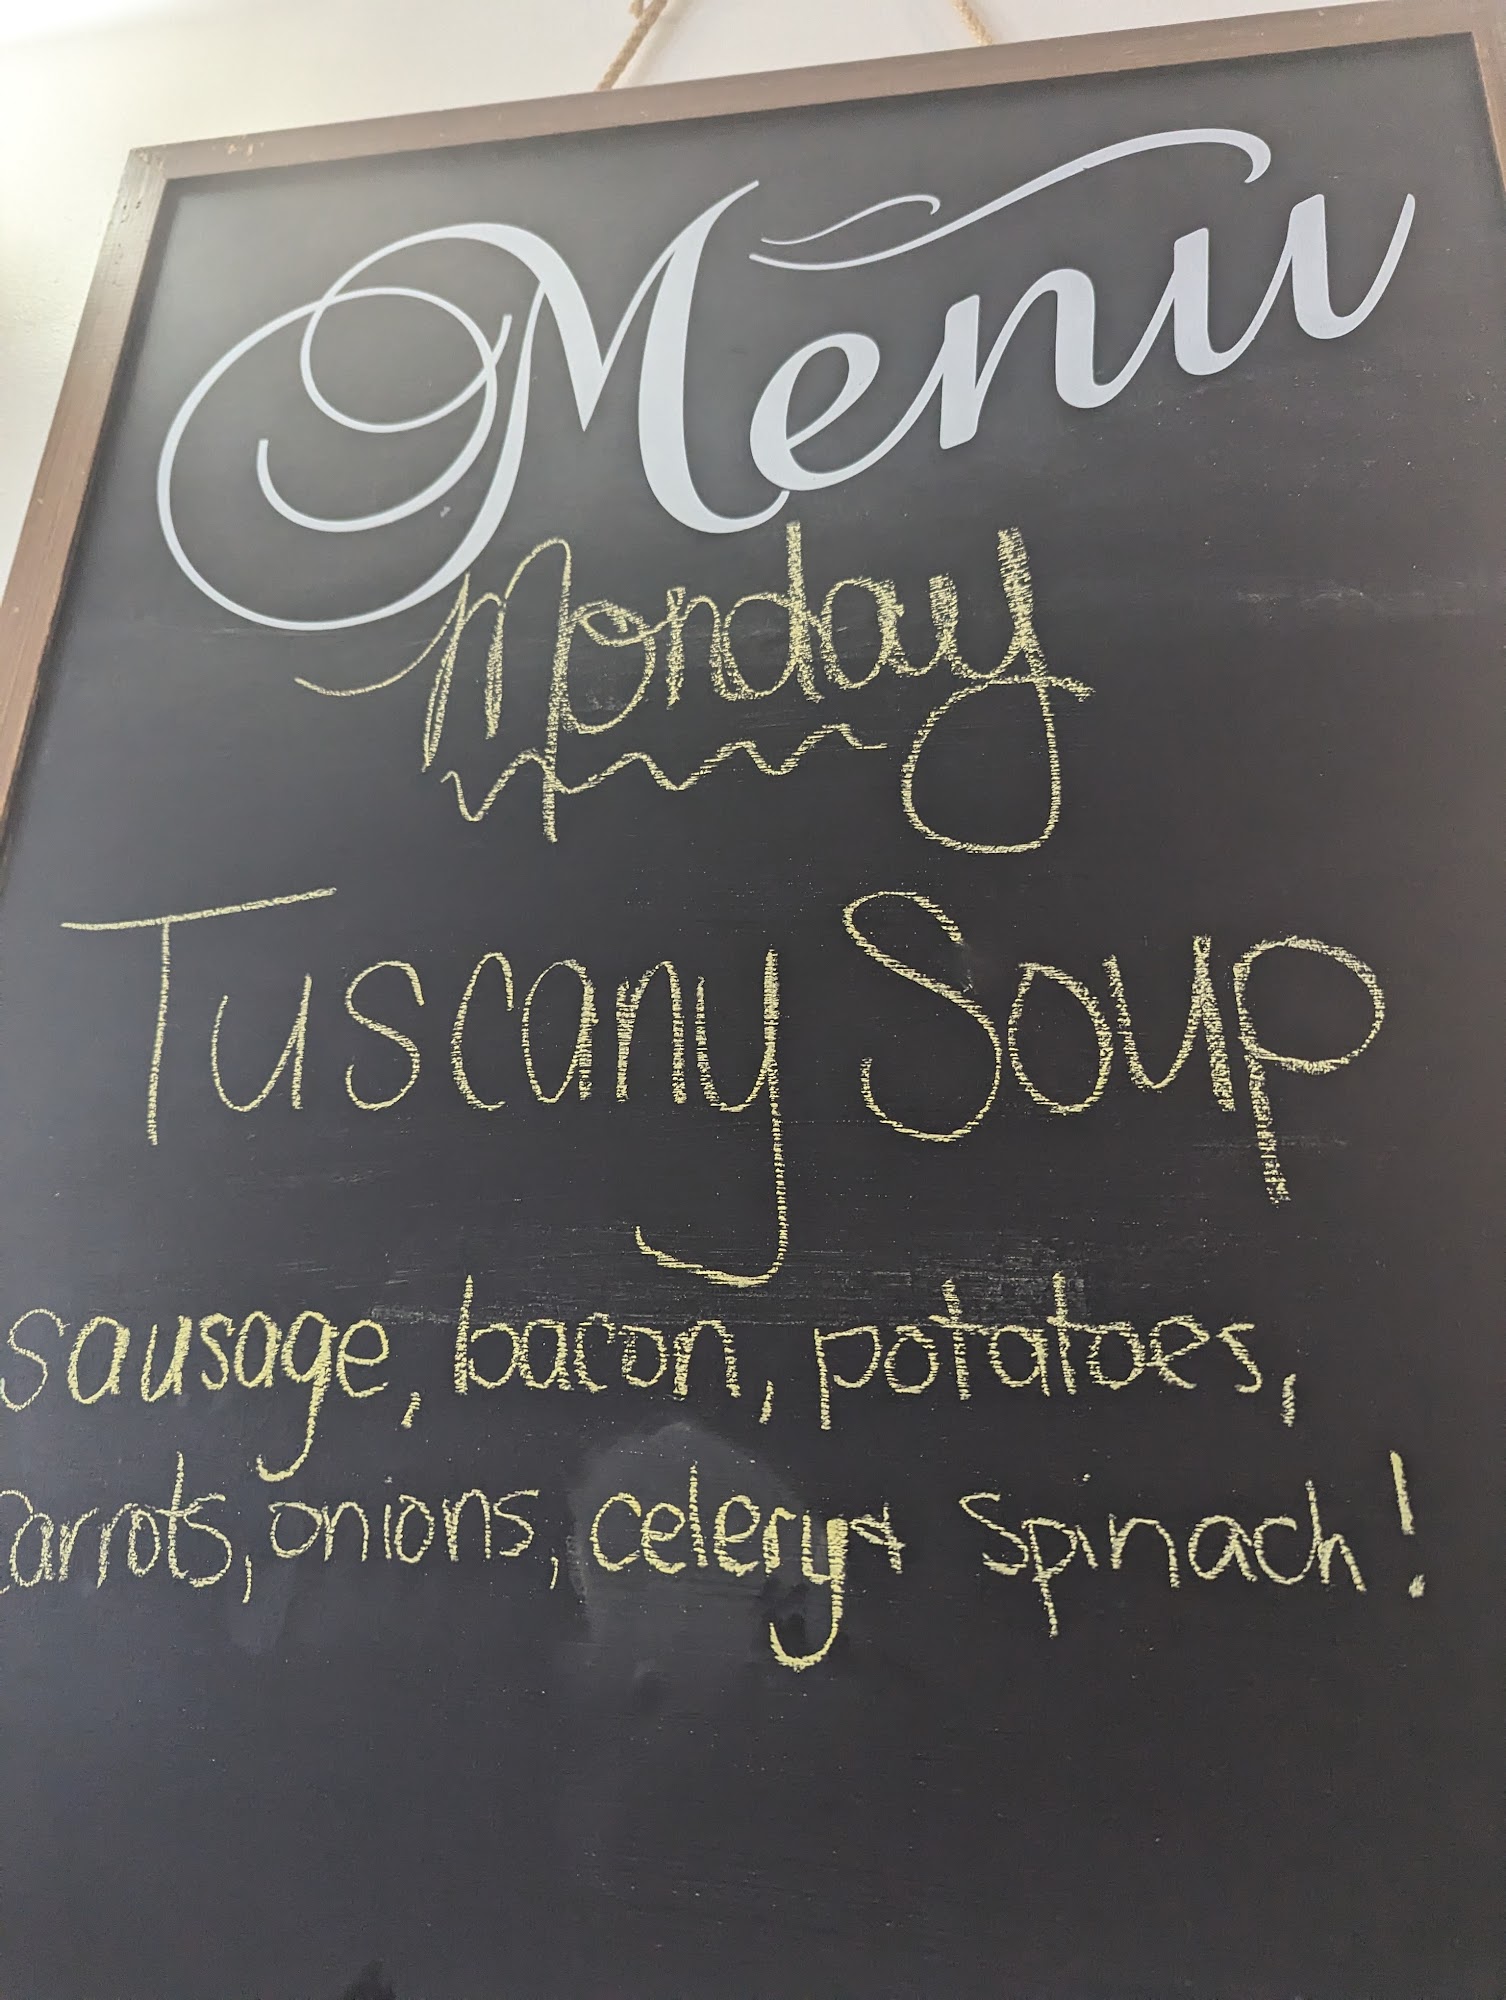 Menu
Monday
Tuscany Soup
sausage, bacon, potatoes,
carrots, onions, celery & Spinach!